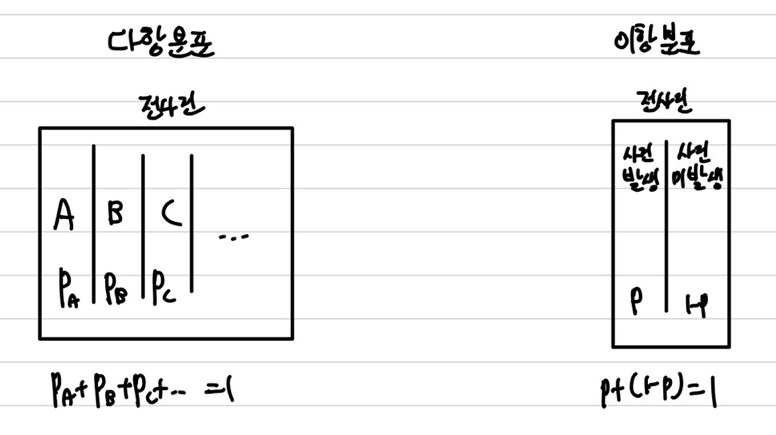 다항분포
전사건
A B C ...
P_A P_B P_C
P_A + P_B + P_C + ... = 1
이항분포
전사건
사건 사건
발생 미발생
P 1-P
P + (1-P) = 1